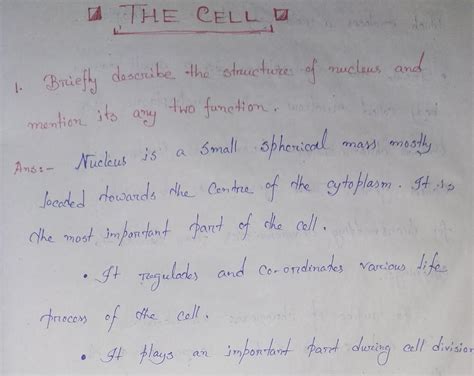 THE CELL
1. Briefly describe the structure of nucleus and
mention its any two function.
Ans:- Nucleus is a small spherical mass mostly
located towards the Centre of the cytoplasm. It is
the most important part of the cell.
• It regulates and co-ordinates various life
process of the cell.
• It plays an important part during cell division